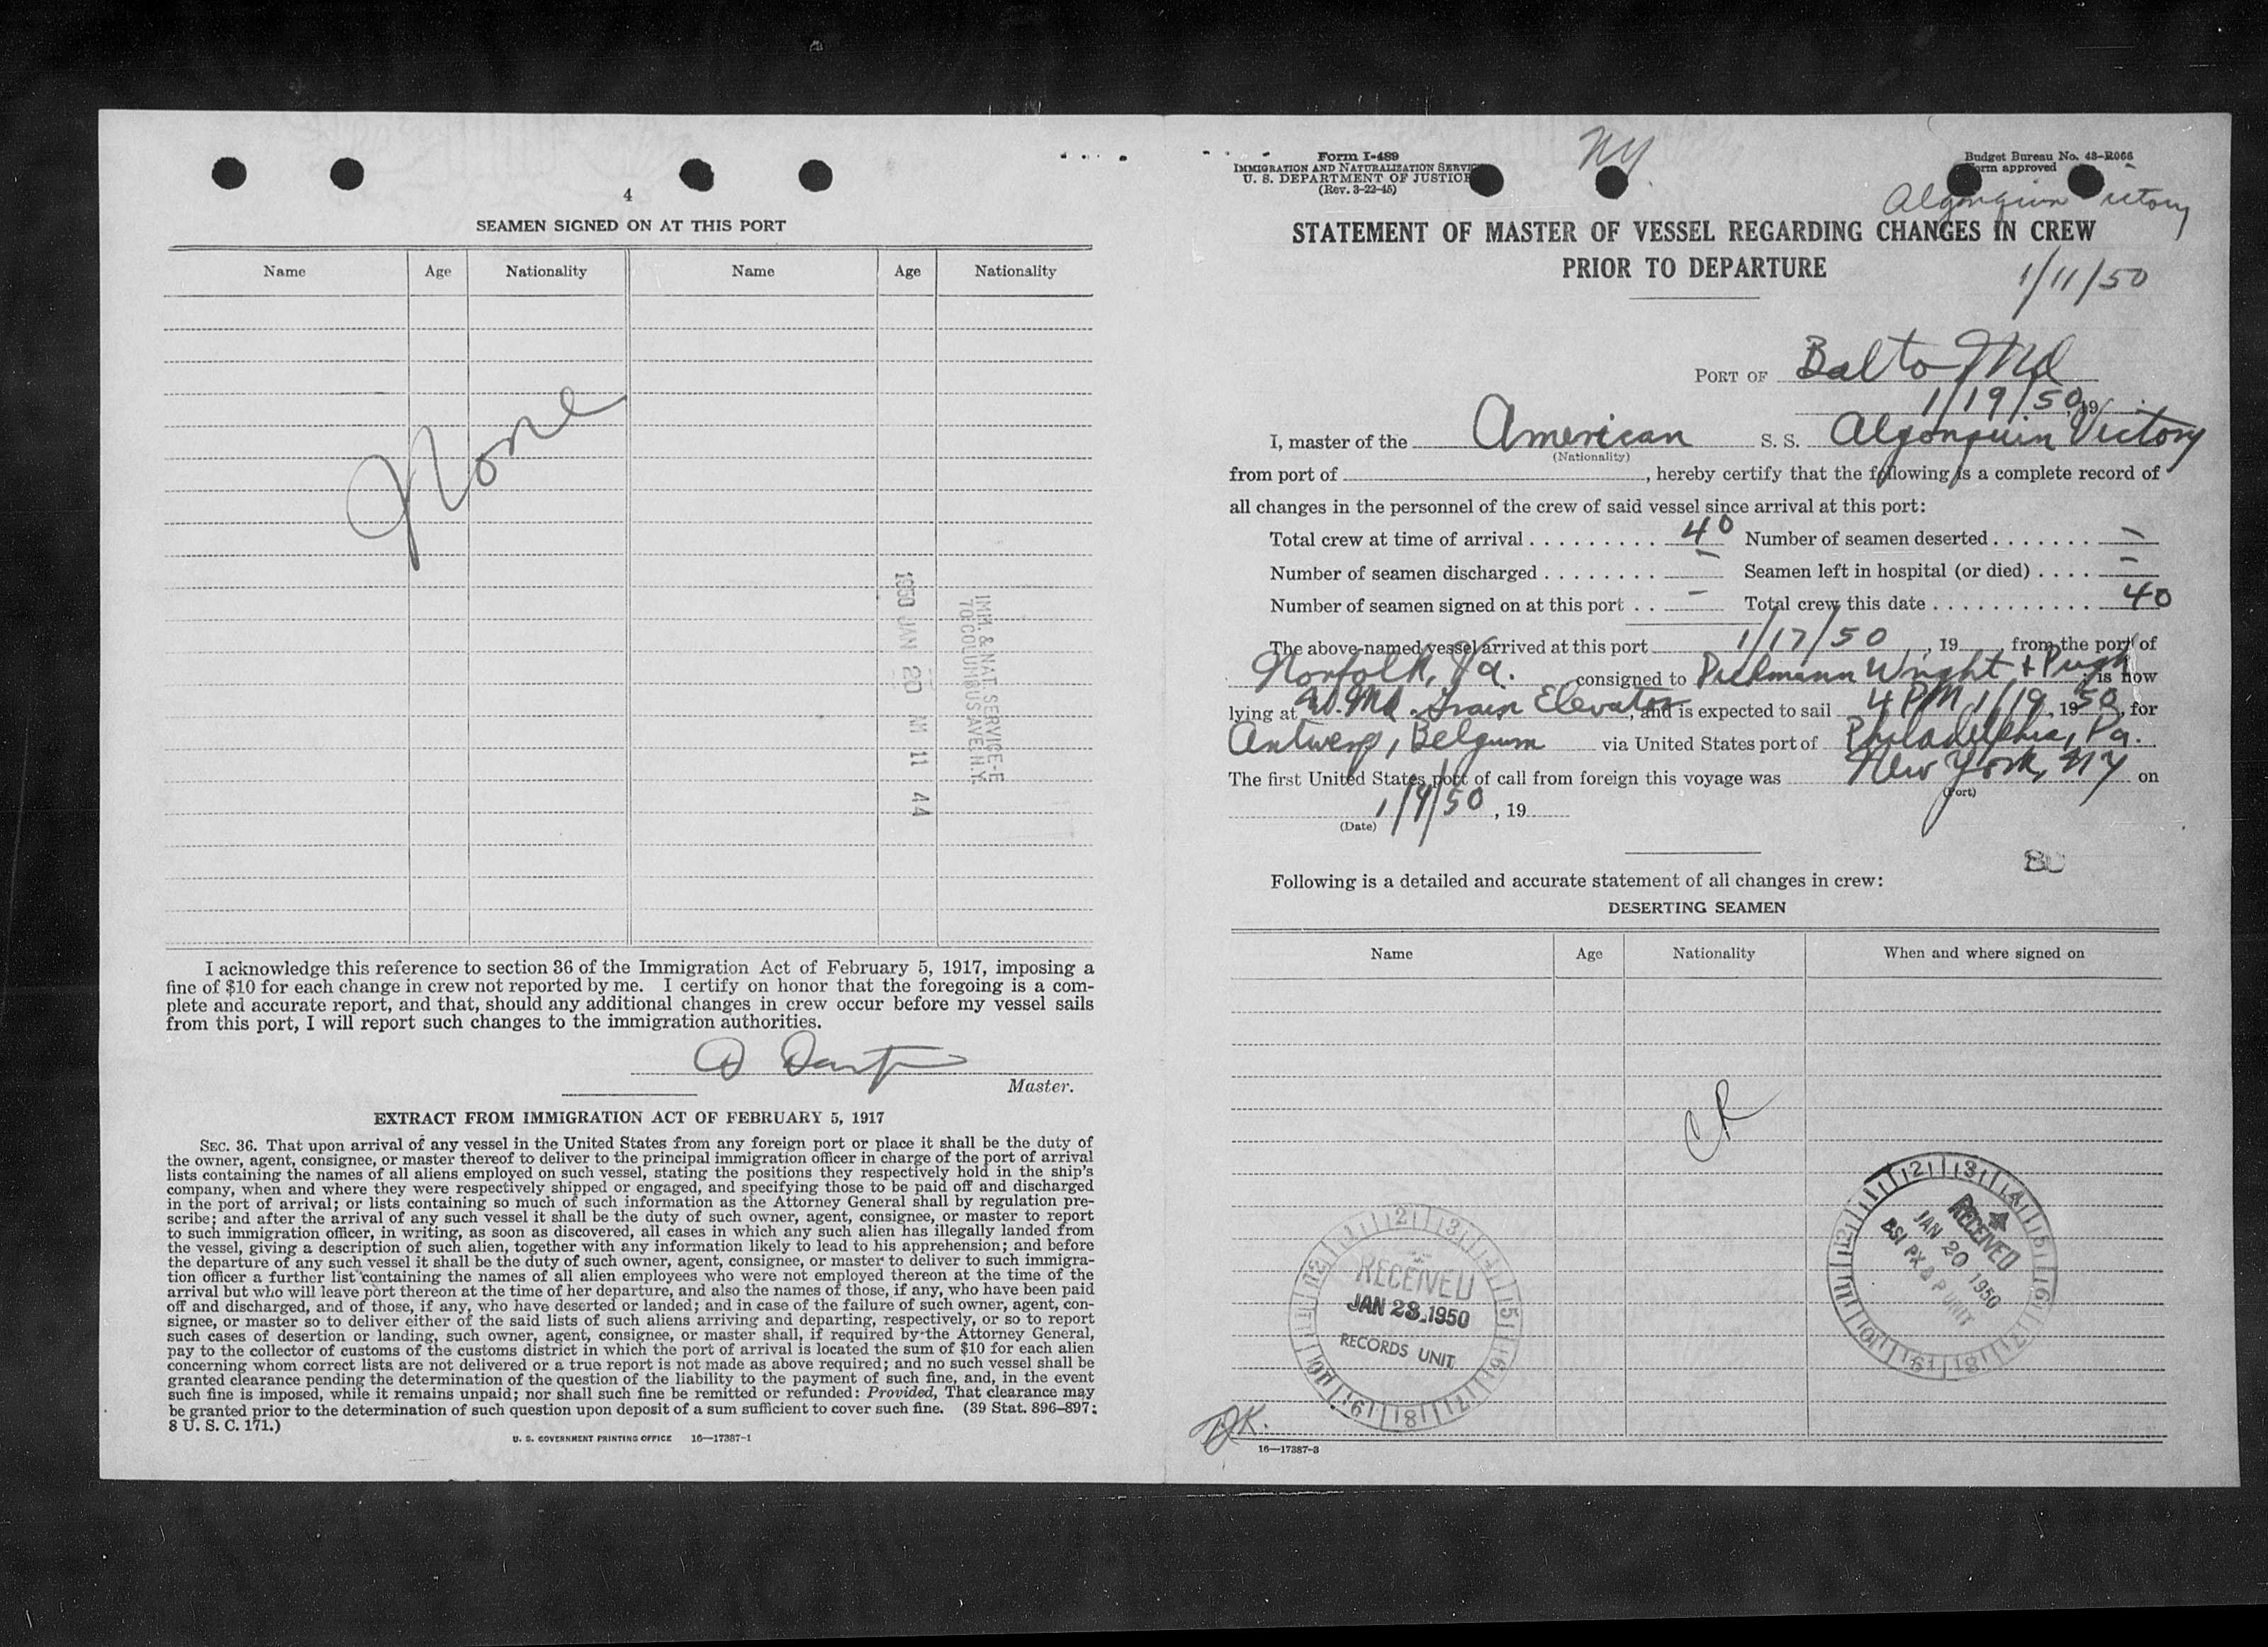 4
SEAMEN SIGNED ON AT THIS PORT
Name Age Nationality Name Age Nationality
None
1950 JAN 20 AM 11 44
IMM. & NAT. SERVICE-E
70 COLUMBUS AVE. N.Y.
I acknowledge this reference to section 36 of the Immigration Act of February 5, 1917, imposing a
fine of $10 for each change in crew not reported by me. I certify on honor that the foregoing is a com-
plete and accurate report, and that, should any additional changes in crew occur before my vessel sails
from this port, I will report such changes to the immigration authorities.
Master.
EXTRACT FROM IMMIGRATION ACT OF FEBRUARY 5, 1917
SEC. 36. That upon arrival of any vessel in the United States from any foreign port or place it shall be the duty of
the owner, agent, consignee, or master thereof to deliver to the principal immigration officer in charge of the port of arrival
lists containing the names of all aliens employed on such vessel, stating the positions they respectively hold in the ship's
company, when and where they were respectively shipped or engaged, and specifying those to be paid off and discharged
in the port of arrival; or lists containing so much of such information as the Attorney General shall by regulation pre-
scribe; and after the arrival of any such vessel it shall be the duty of such owner, agent, consignee, or master to report
to such immigration officer, in writing, as soon as discovered, all cases in which any such alien has illegally landed from
the vessel, giving a description of such alien, together with any information likely to lead to his apprehension; and before
the departure of any such vessel it shall be the duty of such owner, agent, consignee, or master to deliver to such immigra-
tion officer a further list containing the names of all alien employees who were not employed thereon at the time of the
arrival but who will leave port thereon at the time of her departure, and also the names of those, if any, who have been paid
off and discharged, and of those, if any, who have deserted or landed; and in case of the failure of such owner, agent, con-
signee, or master so to deliver either of the said lists of such aliens arriving and departing, respectively, or so to report
such cases of desertion or landing, such owner, agent, consignee, or master shall, if required by the Attorney General,
pay to the collector of customs of the customs district in which the port of arrival is located the sum of $10 for each alien
concerning whom correct lists are not delivered or a true report is not made as above required; and no such vessel shall be
granted clearance pending the determination of the question of the liability to the payment of such fine, and, in the event
such fine is imposed, while it remains unpaid; nor shall such fine be remitted or refunded: Provided, That clearance may
be granted prior to the determination of such question upon deposit of a sum sufficient to cover such fine. (39 Stat. 896-897;
8 U. S. C. 171.)
U. S. GOVERNMENT PRINTING OFFICE 16—17387-1
Form I-489
IMMIGRATION AND NATURALIZATION SERVICE
U. S. DEPARTMENT OF JUSTICE
(Rev. 3-22-45)
NY.
Budget Bureau No. 43-R066
Form approved
Algonquin Victory
STATEMENT OF MASTER OF VESSEL REGARDING CHANGES IN CREW
PRIOR TO DEPARTURE
1/11/50
PORT OF Balto Md
1/19/50, 19
I, master of the American S. S. Algonquin Victory
(Nationality)
from port of , hereby certify that the following is a complete record of
all changes in the personnel of the crew of said vessel since arrival at this port:
Total crew at time of arrival . . . . . . . . . 40 Number of seamen deserted . . . . . . . –
Number of seamen discharged . . . . . . . . – Seamen left in hospital (or died) . . . . –
Number of seamen signed on at this port . . – Total crew this date . . . . . . . . . . . 40
The above-named vessel arrived at this port 1/17/50, 19 , from the port of
Norfolk, Va. consigned to Wright & Pugh is now
lying at W. Md. Grain Elevator, and is expected to sail 4 PM 1/19, 1950, for
Antwerp, Belgium via United States port of Philadelphia, Pa.
The first United States port of call from foreign this voyage was New York, NY on
(Port)
1/9/50, 19
(Date)
Following is a detailed and accurate statement of all changes in crew:
DESERTING SEAMEN
Name Age Nationality When and where signed on
RECEIVED
JAN 23 1950
RECORDS UNIT
RECEIVED
JAN 20 1950
BSI PX & P UNIT
16—17387-3